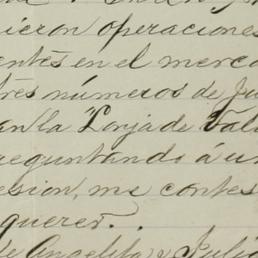 icron operaciones
entes en el merca
tres números de Ju
an la Lonja de Val
reguntando á un
esion, me contes
querer. .
de Angelita y Julio